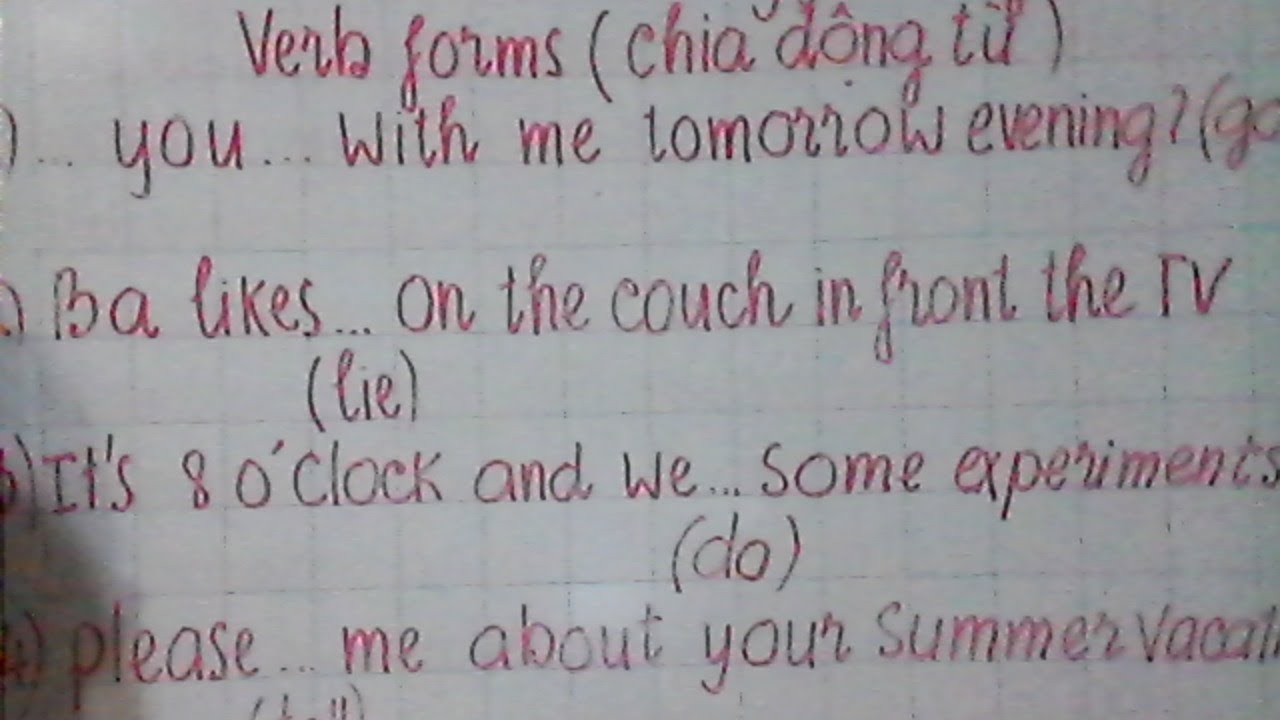 Verb forms (chia động từ)
) ... you ... with me tomorrow evening? (go
) Ba likes ... on the couch in front the TV
(lie)
) It's 8 o'clock and we ... some experiments
(do)
) please ... me about your summer vacati